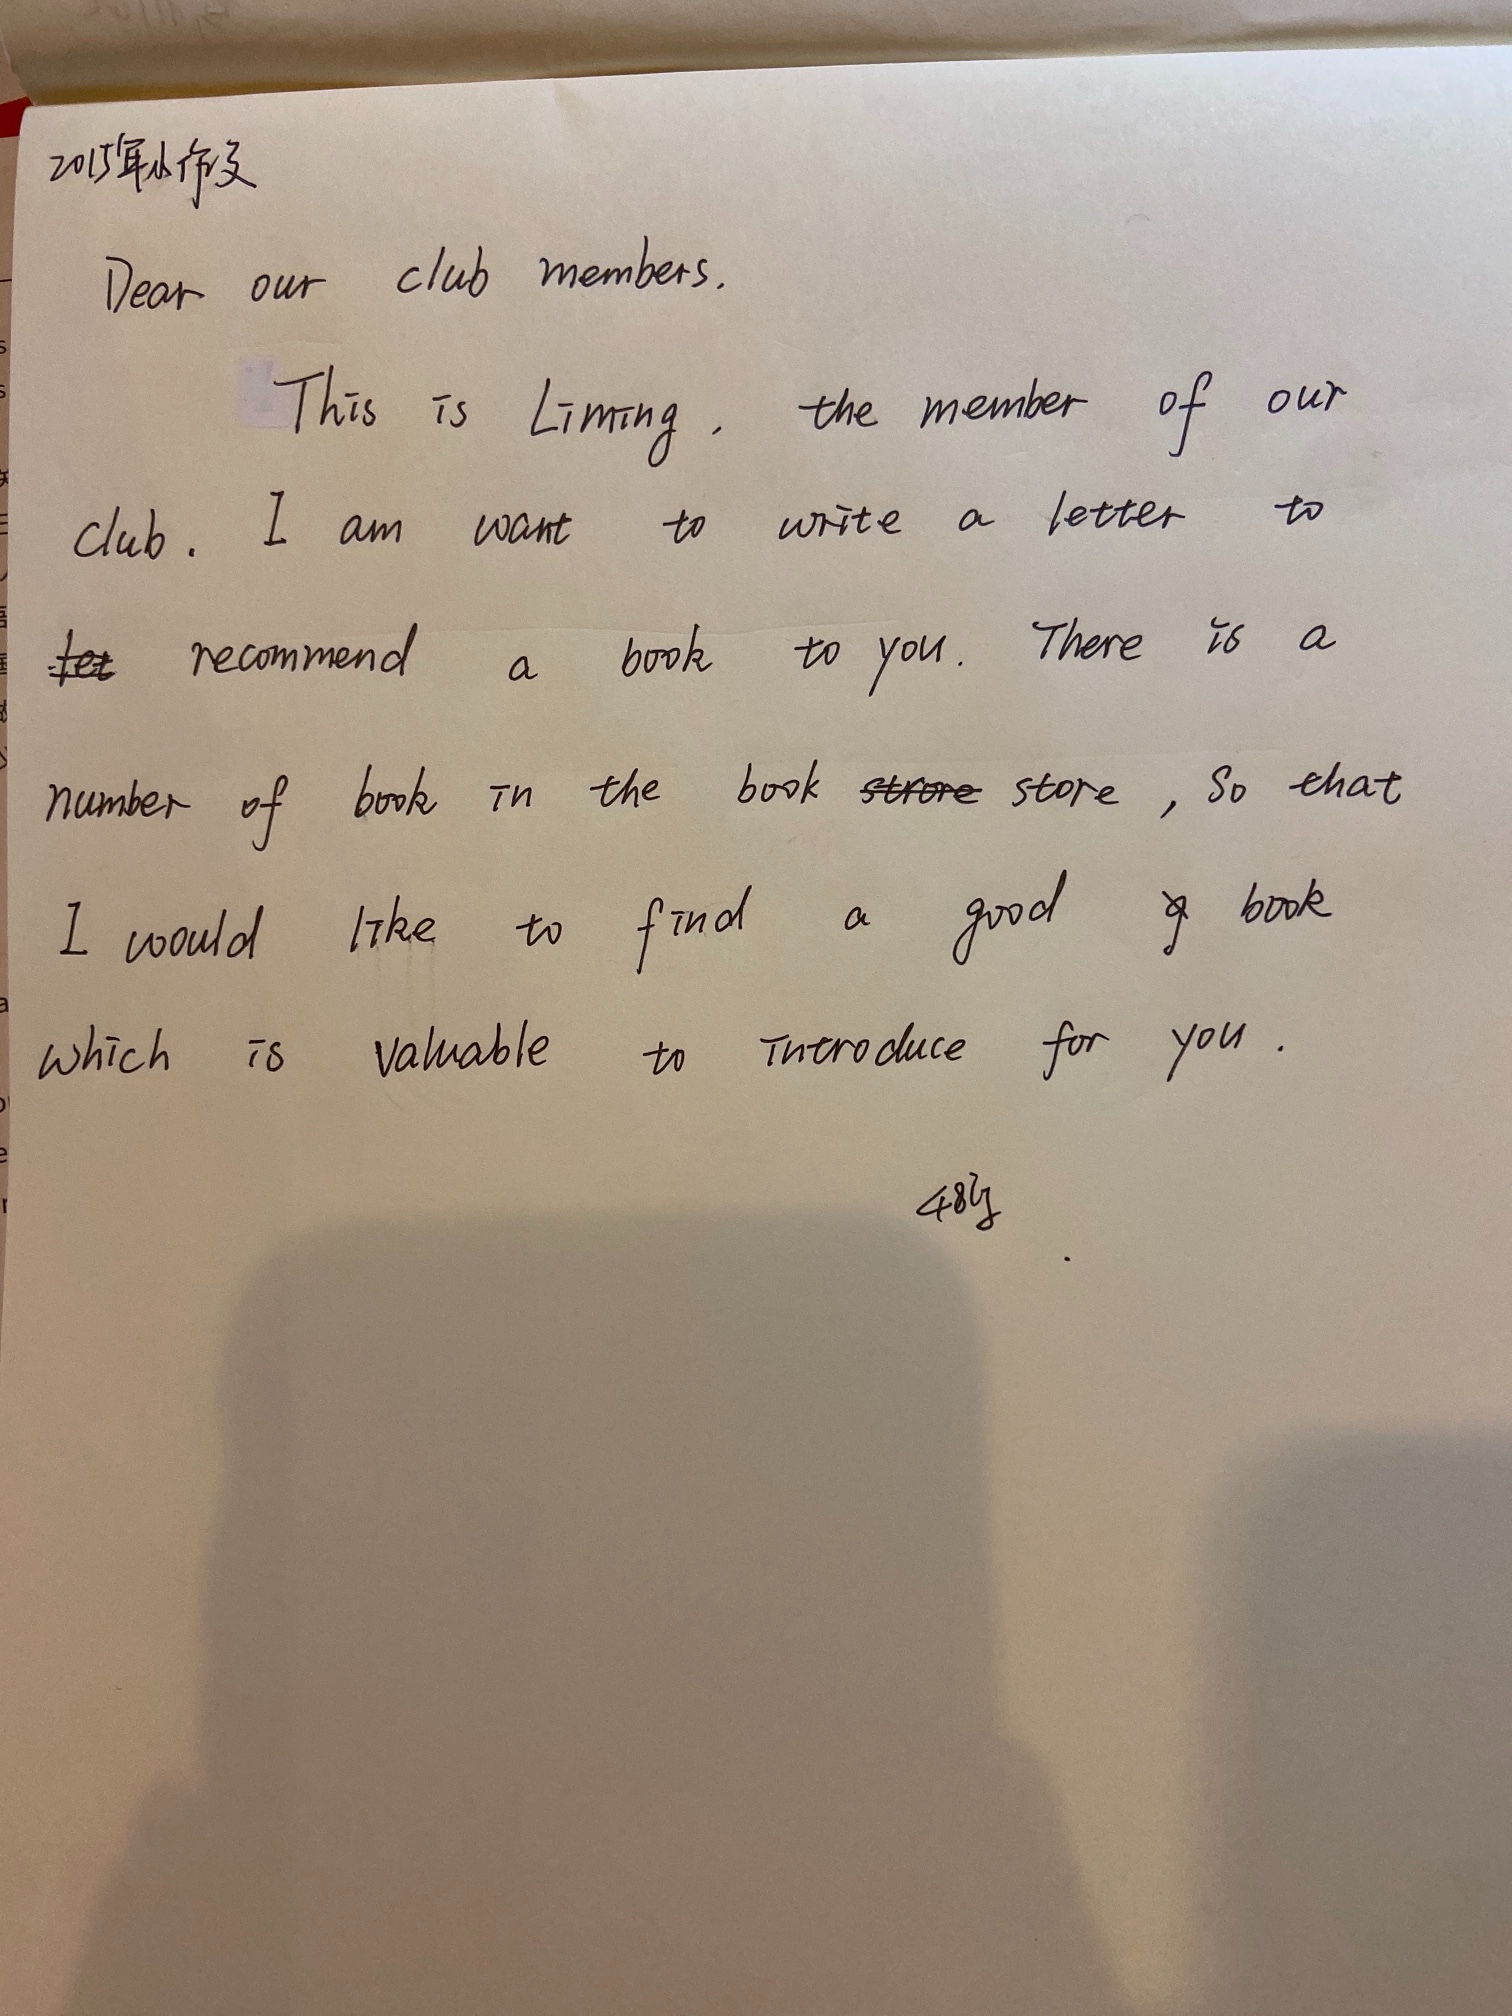 2015年小作文
Dear our club members.
This is Liming, the member of our
club. I am want to write a letter to
recommend a book to you. There is a
number of book in the book store, So that
I would like to find a good book
which is valuable to introduce for you.